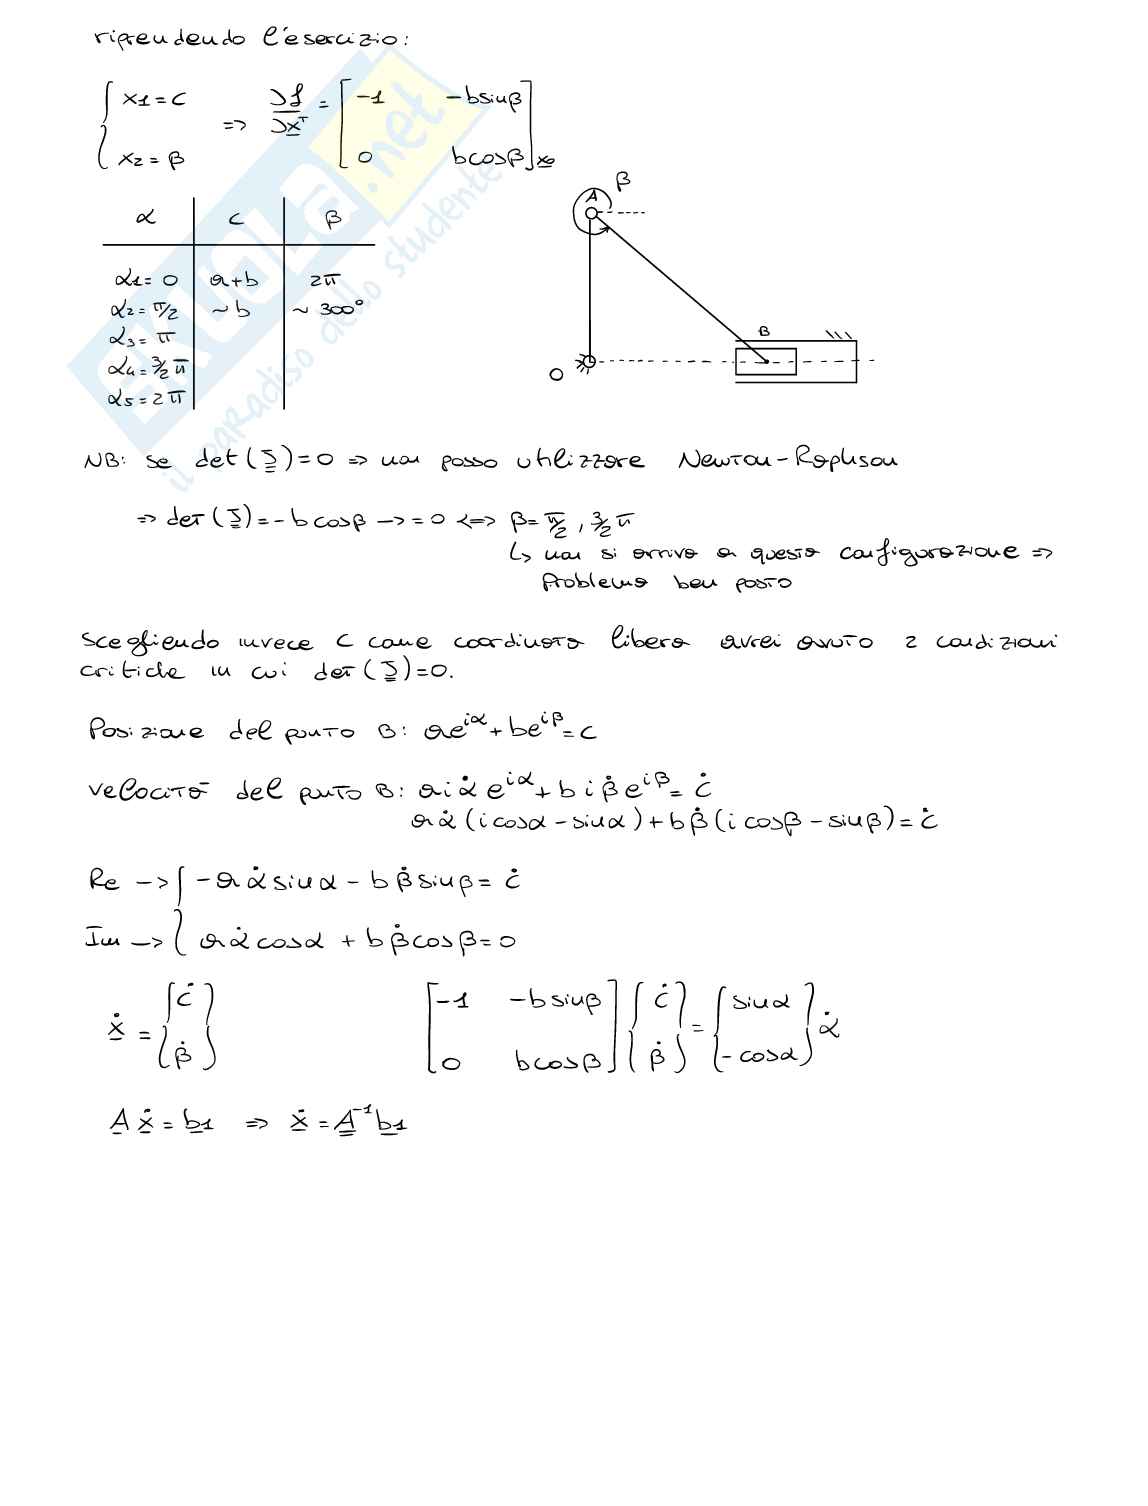 riprendendo l'esercizio:
{ x1 = c
x2 = β
=> ∂f/∂x^T = [ -1 -b sinβ
0 b cosβ ]x0
α c β
α1 = 0 a+b 2π
α2 = π/2 ~b ~300°
α3 = π
α4 = 3/2 π
α5 = 2π
A β
B
O
NB: se det(J) = 0 => non posso utilizzare Newton-Raphson
=> det(J) = -b cosβ -> = 0 <=> β = π/2, 3/2 π
↳ non si arriva a questa configurazione =>
problema ben posto
Scegliendo invece c come coordinata libera avrei avuto 2 condizioni
critiche in cui det(J) = 0.
Posizione del punto B: ae^iα + be^iβ = c
velocità del punto B: a i α̇ e^iα + b i β̇ e^iβ = ċ
a α̇ (i cosα - sinα) + b β̇ (i cosβ - sinβ) = ċ
Re -> { -a α̇ sinα - b β̇ sinβ = ċ
Im -> { a α̇ cosα + b β̇ cosβ = 0
ẋ = { ċ
β̇ }
[ -1 -b sinβ
0 b cosβ ] { ċ
β̇ } = { sinα
-cosα } α̇
A ẋ = b1 => ẋ = A^-1 b1
SKUOLA.net
il paradiso dello studente